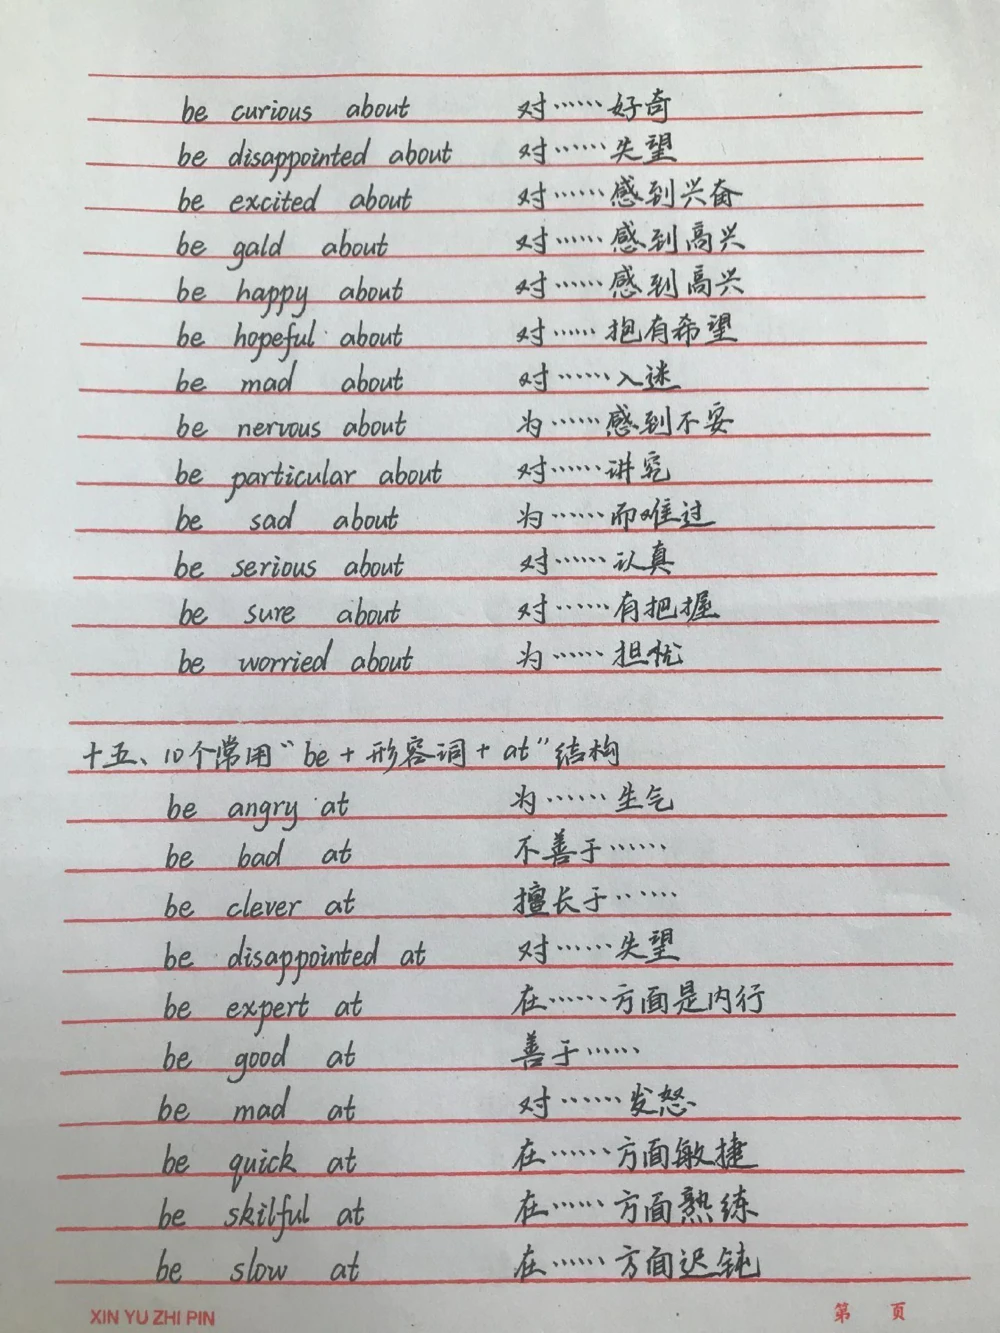 be curious about 对……好奇
be disappointed about 对……失望
be excited about 对……感到兴奋
be gald about 对……感到高兴
be happy about 对……感到高兴
be hopeful about 对……抱有希望
be mad about 对……入迷
be nervous about 为……感到不安
be particular about 对……讲究
be sad about 为……而难过
be serious about 对……认真
be sure about 对……有把握
be worried about 为……担忧
十五、10个常用“be + 形容词 + at”结构
be angry at 为……生气
be bad at 不善于……
be clever at 擅长于……
be disappointed at 对……失望
be expert at 在……方面是内行
be good at 善于……
be mad at 对……发怒
be quick at 在……方面敏捷
be skilful at 在……方面熟练
be slow at 在……方面迟钝
XIN YU ZHI PIN 第 页